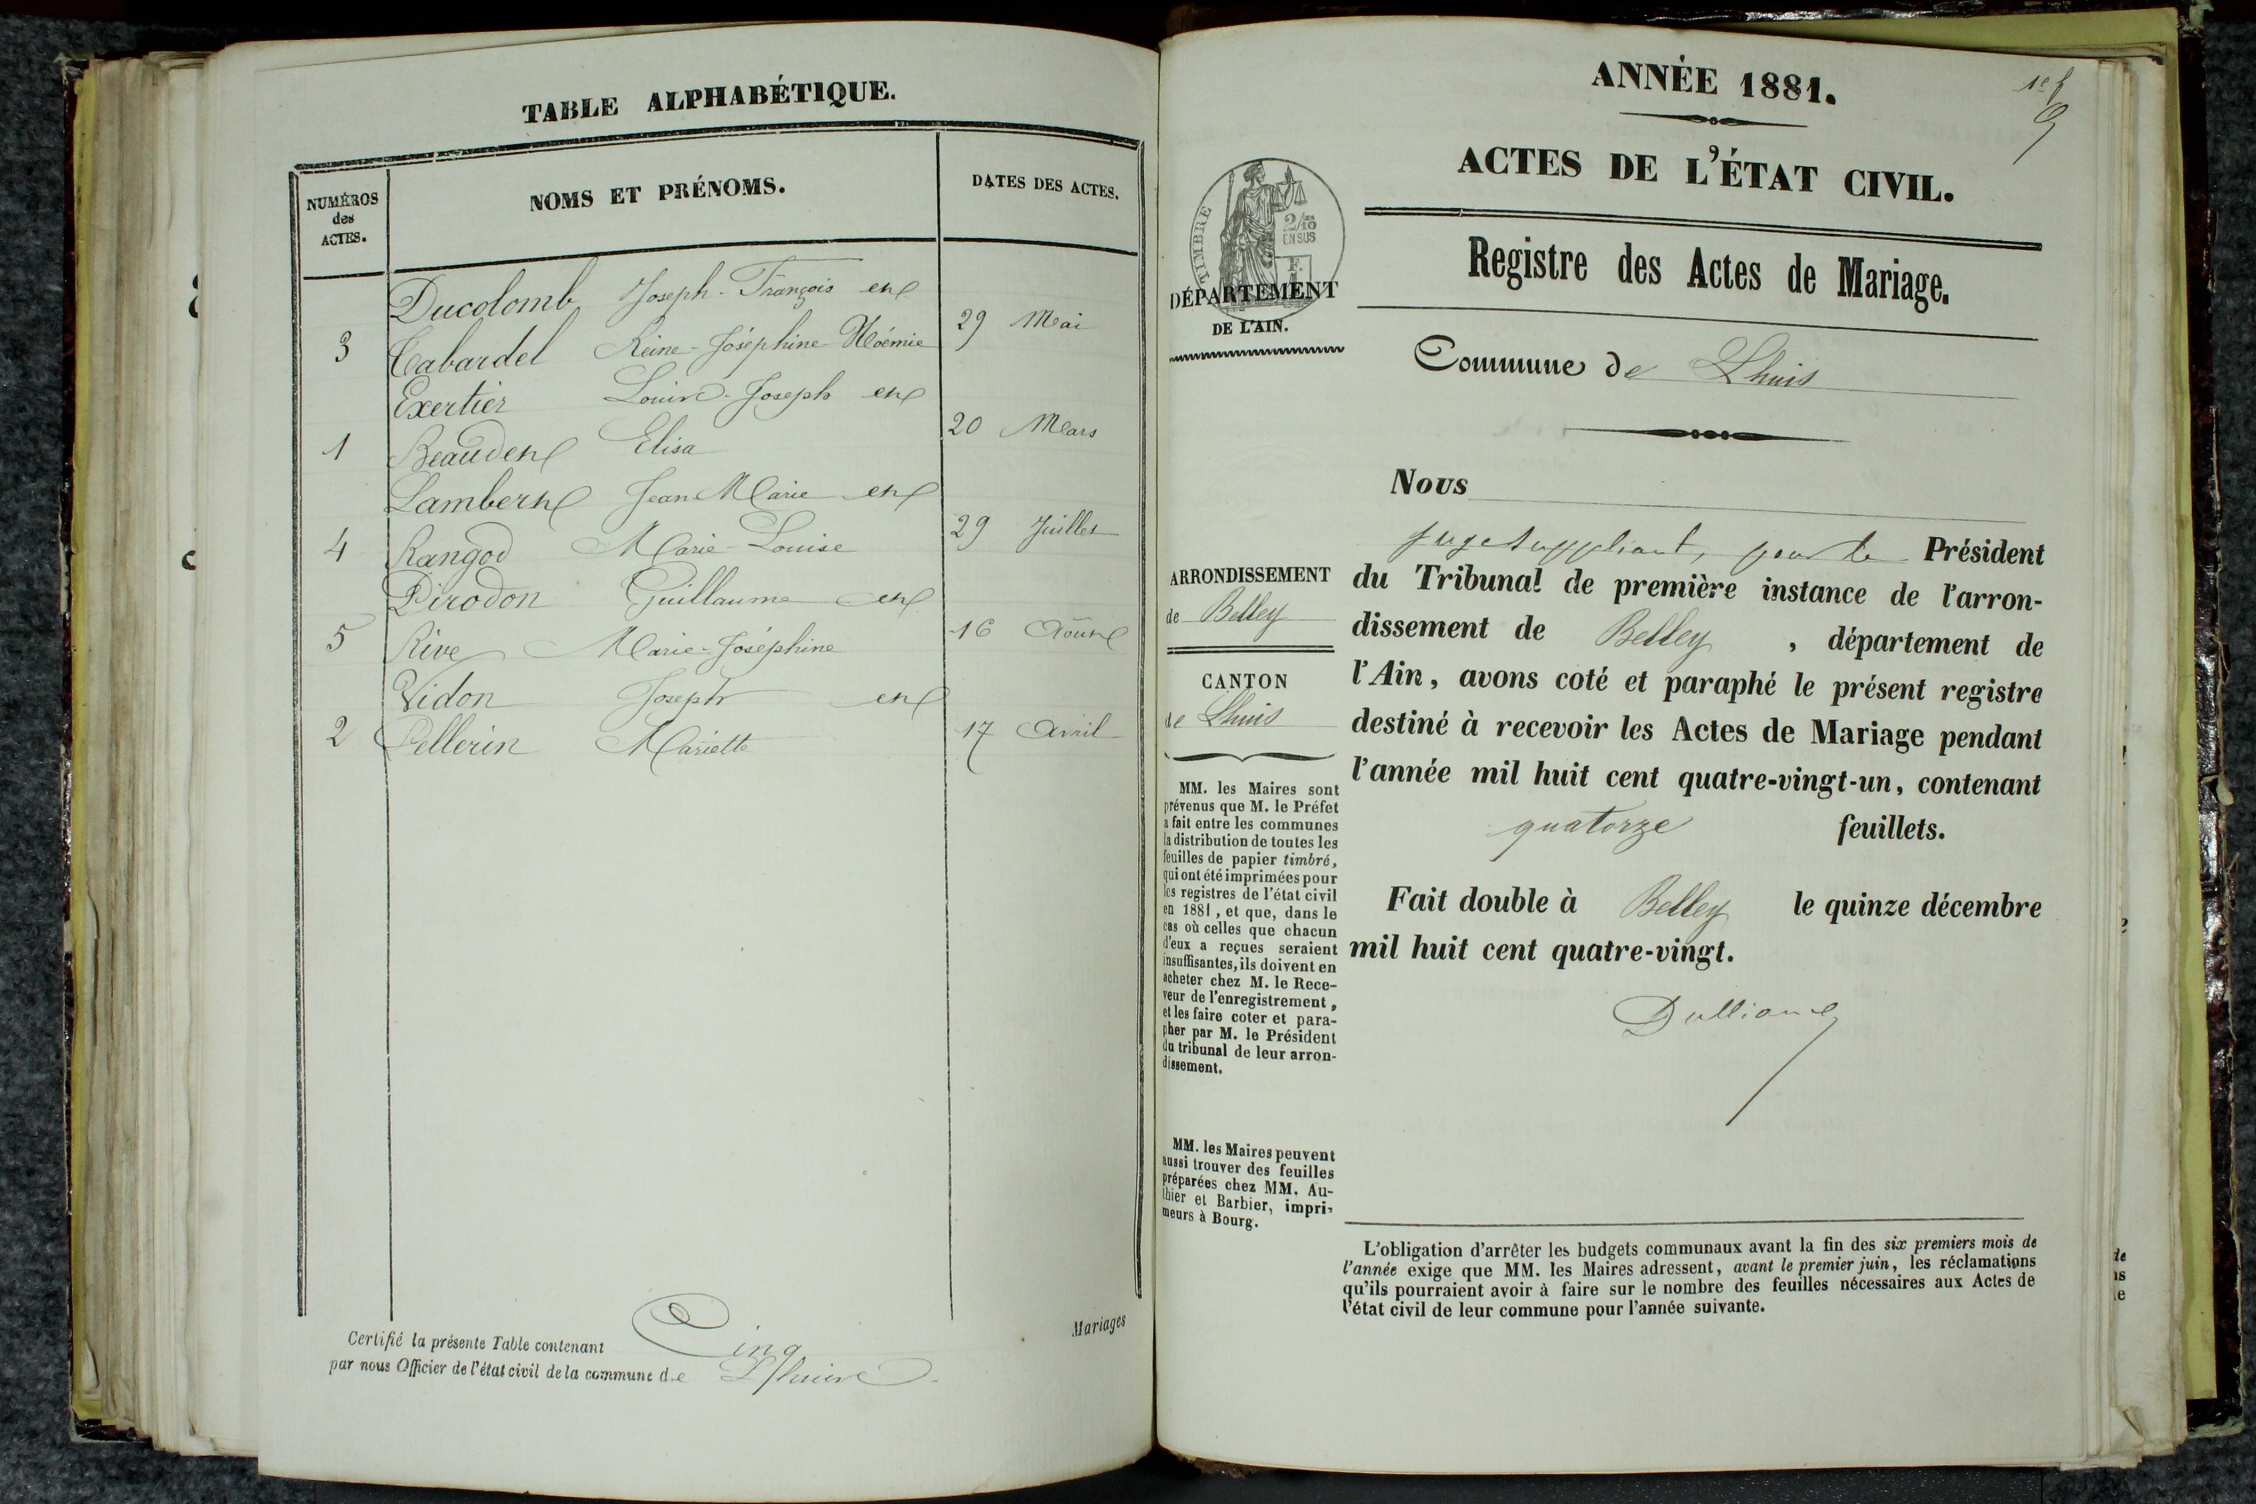 TABLE ALPHABÉTIQUE.
NUMÉROS
des
ACTES.
NOMS ET PRÉNOMS.
DATES DES ACTES.
Ducolomb Joseph-François et
3 Cabardel Reine-Joséphine-Noémie 29 Mai
Exertier Louis-Joseph et
1 Beaudet Elisa 20 Mars
Lambert Jean Marie et
4 Rangod Marie-Louise 29 Juillet
Pirodon Guillaume et
5 Rive Marie-Joséphine 16 Août
Vidon Joseph et
2 Pellerin Mariette 17 Avril
Certifié la présente Table contenant Cinq Mariages
par nous Officier de l'état civil de la commune de Lhuis
ANNÉE 1881.
ACTES DE L'ÉTAT CIVIL.
Registre des Actes de Mariage.
TIMBRE
2/10
EN SUS
DÉPARTEMENT
DE L'AIN.
Commune de Lhuis
Nous
juge suppléant, pour le Président
du Tribunal de première instance de l'arron-
dissement de Belley, département de
l'Ain, avons coté et paraphé le présent registre
destiné à recevoir les Actes de Mariage pendant
l'année mil huit cent quatre-vingt-un, contenant
quatorze feuillets.
Fait double à Belley le quinze décembre
mil huit cent quatre-vingt.
ARRONDISSEMENT
de Belley
CANTON
de Lhuis
MM. les Maires sont
prévenus que M. le Préfet
a fait entre les communes
la distribution de toutes les
feuilles de papier timbré,
qui ont été imprimées pour
les registres de l'état civil
en 1881, et que, dans le
cas où celles que chacun
d'eux a reçues seraient
insuffisantes, ils doivent en
acheter chez M. le Rece-
veur de l'enregistrement,
et les faire coter et para-
pher par M. le Président
du tribunal de leur arron-
dissement.
MM. les Maires peuvent
aussi trouver des feuilles
préparées chez MM. Au-
thier et Barbier, impri-
meurs à Bourg.
L'obligation d'arrêter les budgets communaux avant la fin des six premiers mois de
l'année exige que MM. les Maires adressent, avant le premier juin, les réclamations
qu'ils pourraient avoir à faire sur le nombre des feuilles nécessaires aux Actes de
l'état civil de leur commune pour l'année suivante.